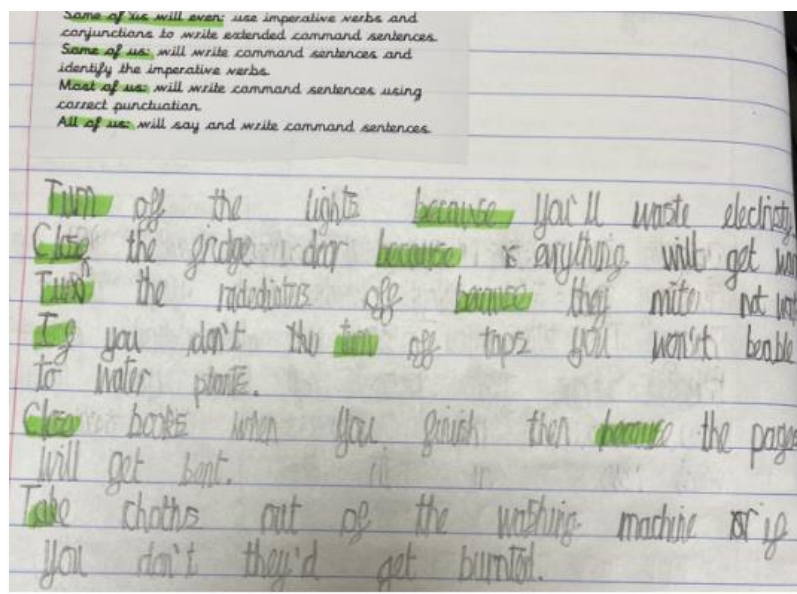 Some of us will even: use imperative verbs and
conjunctions to write extended command sentences.
Some of us: will write command sentences and
identify the imperative verbs.
Most of us: will write command sentences using
correct punctuation.
All of us: will say and write command sentences.
Turn off the lights because you'll waste electristy
Close the fridge door because anything will get
Turn the radediators off because they mite not
If you don't the turn off taps you won't beable
to water plants.
Close books when you finish then because the pages
will get bent.
Take choths out of the washing machine or if
you don't they'd get burnted.